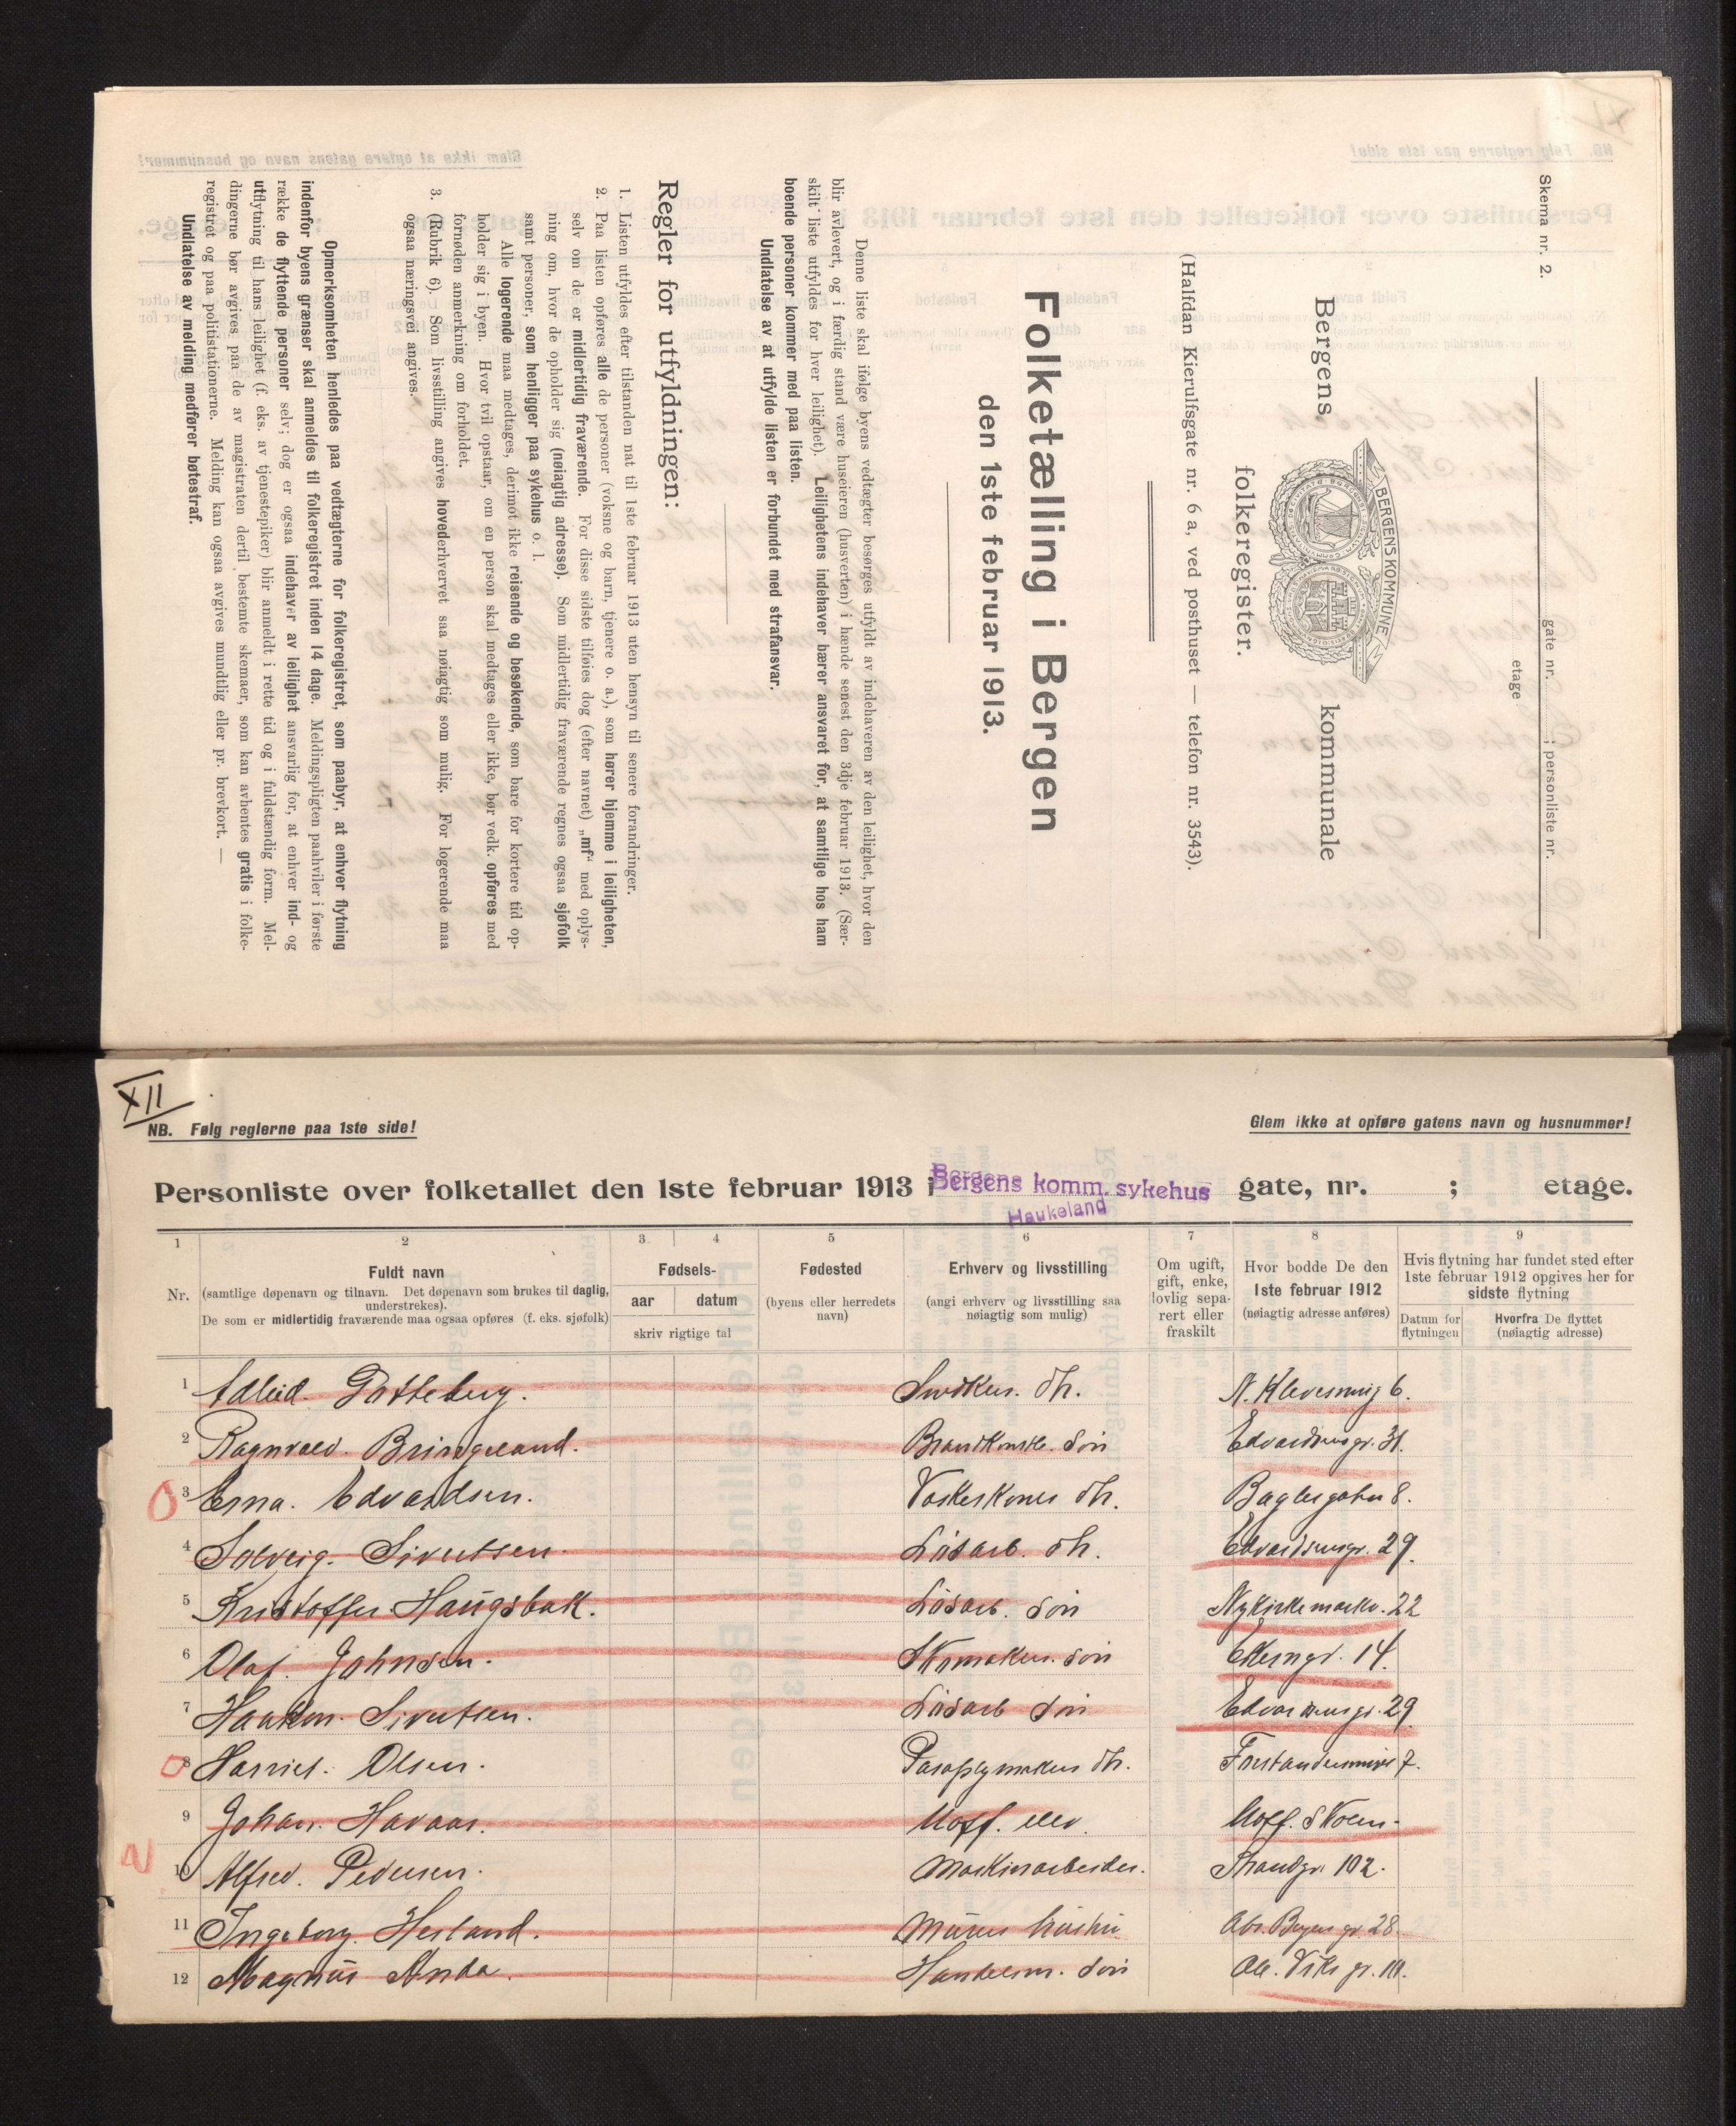 Skema nr. 2.
gate nr. i personliste nr.
etage
Bergens kommunale
BERGENS KOMMUNE
folkeregister.
(Halfdan Kierulfsgate nr. 6 a, ved posthuset — telefon nr. 3543).
Folketælling i Bergen
den 1ste februar 1913.
Denne liste skal ifølge byens vedtægter besørges utfyldt av indehaveren av den leilighet, hvor den
blir avlevert, og i færdig stand være huseieren (husverten) i hænde senest den 3dje februar 1913. (Sær-
skilt liste utfyldes for hver leilighet). Leilighetens indehaver bærer ansvaret for, at samtlige hos ham
boende personer kommer med paa listen.
Undlatelse av at utfylde listen er forbundet med strafansvar.
Regler for utfyldningen:
1. Listen utfyldes efter tilstanden nat til 1ste februar 1913 uten hensyn til senere forandringer.
2. Paa listen opføres alle de personer (voksne og barn, tjenere o. a.), som hører hjemme i leiligheten,
selv om de er midlertidig fraværende. For disse sidste tilføies dog (efter navnet) „mf“ med oplys-
ning om, hvor de opholder sig (nøiagtig adresse). Som midlertidig fraværende regnes ogsaa sjøfolk
samt personer, som henligger paa sykehus o. l.
Alle logerende maa medtages, derimot ikke reisende og besøkende, som bare for kortere tid op-
holder sig i byen. Hvor tvil opstaar, om en person skal medtages eller ikke, bør vedk. opføres med
fornøden anmerkning om forholdet.
3. (Rubrik 6). Som livsstilling angives hovederhvervet saa nøiagtig som mulig. For logerende maa
ogsaa næringsvei angives.
Opmerksomheten henledes paa vedtægterne for folkeregistret, som paabyr, at enhver flytning
indenfor byens grænser skal anmeldes til folkeregistret inden 14 dage. Meldingspligten paahviler i første
række de flyttende personer selv; dog er ogsaa indehaver av leilighet ansvarlig for, at enhver ind- og
utflytning til hans leilighet (f. eks. av tjenestepiker) blir anmeldt i rette tid og i fuldstændig form. Mel-
dingerne bør avgives paa de av magistraten dertil bestemte skemaer, som kan avhentes gratis i folke-
registret og paa politistationerne. Melding kan ogsaa avgives mundtlig eller pr. brevkort. —
Undlatelse av melding medfører bøtestraf.
XII
NB. Følg reglerne paa 1ste side! Glem ikke at opføre gatens navn og husnummer!
Personliste over folketallet den 1ste februar 1913 i Bergens komm. sykehus gate, nr. ; etage.
Haukeland
1 2 3 4 5 6 7 8 9
Nr. Fuldt navn (samtlige døpenavn og tilnavn. Det døpenavn som brukes til daglig, understrekes). De som er midlertidig fraværende maa ogsaa opføres (f. eks. sjøfolk)
Fødsels- aar datum skriv rigtige tal
Fødested (byens eller herredets navn)
Erhverv og livsstilling (angi erhverv og livsstilling saa nøiagtig som mulig)
Om ugift, gift, enke, lovlig sepa- rert eller fraskilt
Hvor bodde De den 1ste februar 1912 (nøiagtig adresse anføres)
Hvis flytning har fundet sted efter 1ste februar 1912 opgives her for sidste flytning
Datum for flytningen Hvorfra De flyttet (nøiagtig adresse)
1 Adleid. Totteberg. Snedker. dtr. N. Klevesmug 6.
2 Ragnvald. Bringeland. Brandkonstb. søn Edvardsensgt. 31.
3 Erna. Edvardsen. Vaskekones dtr. Baglergaten 8.
4 Solveig. Sivertsen. Løsarb. dtr. Edvardsensgt. 29.
5 Kristoffer Haugsbak. Løsarb. søn Nykirkemarkv. 22
6 Olaf. Johnsen. Skomaker. søn Ekerngt. 14.
7 Haakon. Sivertsen. Løsarb søn Edvardsensgt. 29
8 Harriet. Olsen. Paraplymakers dtr. Forstandersmug 7.
9 Johan. Havaas. Uoff. elev. Uoff. Skolen.
10 Alfred. Pedersen. Maskinarbeider. Strandgt. 102.
11 Ingeborg. Hesland. Murers hustru. Abs. Beyers gt. 28
12 Magnus Anda. Handelsm. søn Ole. Viks gt. 10.